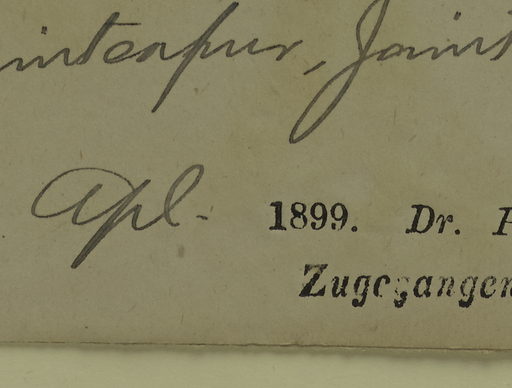 inteapur, Joint
Apl. 1899. Dr.
Zugegangen